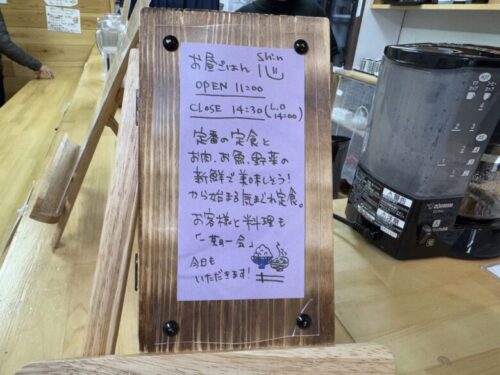 Shin
お昼ごはん 心
OPEN 11:00
CLOSE 14:30 (L.O 14:00)
定番の定食と
お肉、お魚、野菜の
新鮮で美味しそう!
から始まる気まぐれ定食。
お客様と料理も
「一期一会」
今日も
いただきます!
ZOJIRUSHI